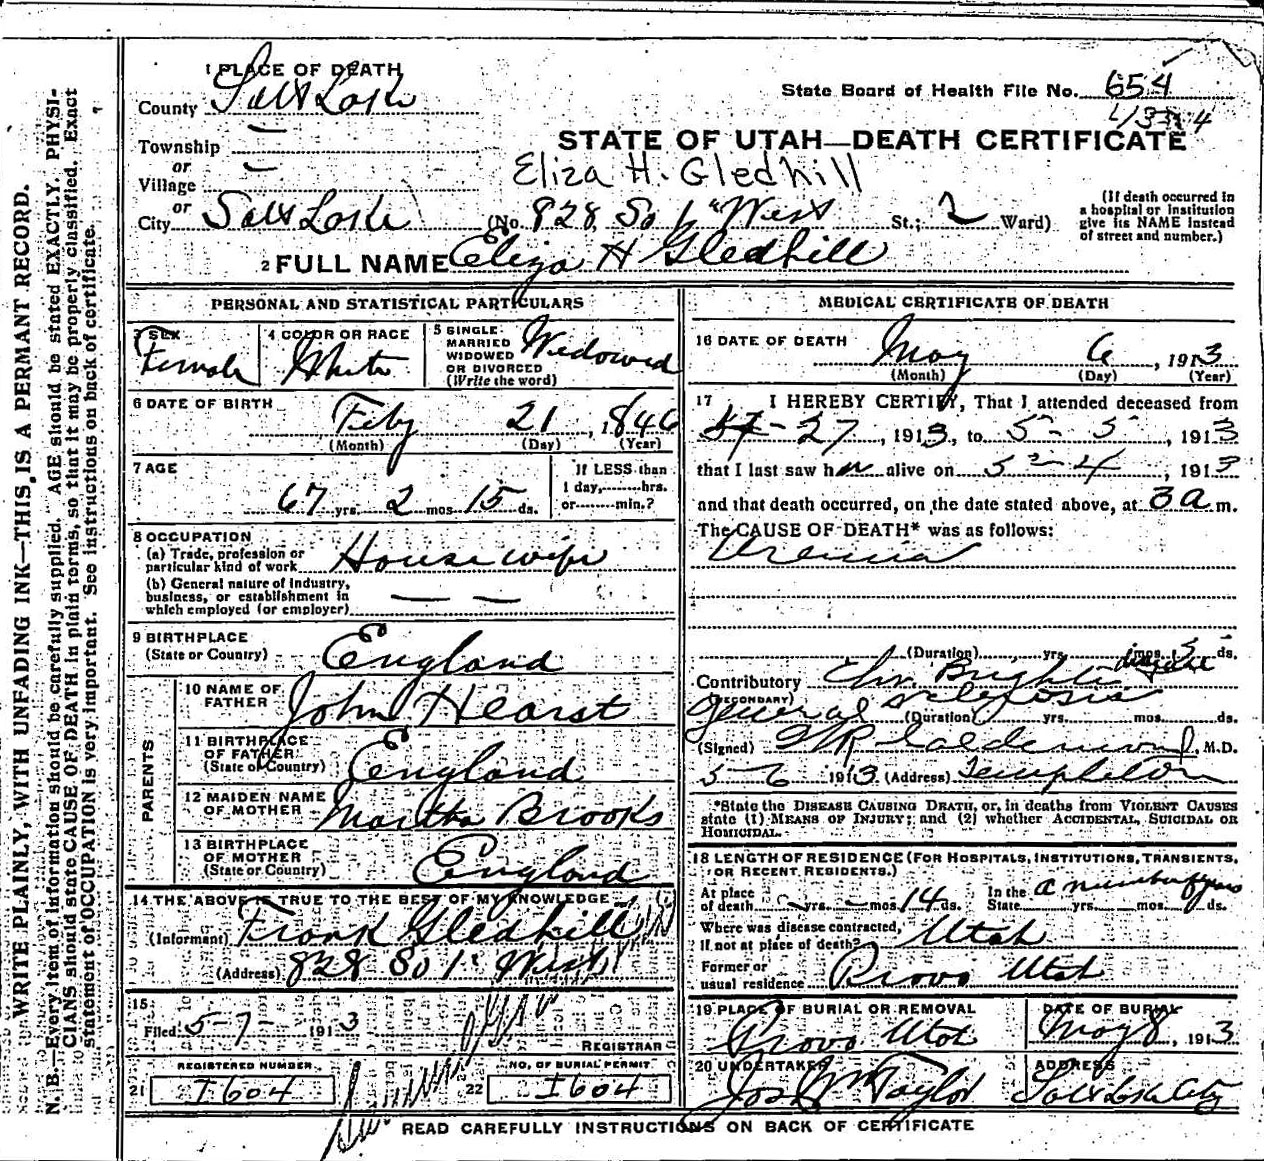 WRITE PLAINLY, WITH UNFADING INK—THIS IS A PERMANT RECORD.
N. B.—Every item of information should be carefully supplied. AGE should be stated EXACTLY. PHYSI-
CIANS should state CAUSE OF DEATH in plain terms, so that it may be properly classified. Exact
statement of OCCUPATION is very important. See instructions on back of certificate.
1 PLACE OF DEATH
County Salt Lake
State Board of Health File No. 654
Township —
STATE OF UTAH—DEATH CERTIFICATE
or
Village —
Eliza H. Gledhill
or
City Salt Lake (No. 828 So 1st West St.; 2 Ward)
(If death occurred in
a hospital or institution
give its NAME instead
of street and number.)
2 FULL NAME Eliza H Gledhill
PERSONAL AND STATISTICAL PARTICULARS
3 SEX
Female
4 COLOR OR RACE
White
5 SINGLE
MARRIED
WIDOWED
OR DIVORCED
(Write the word)
Widowed
6 DATE OF BIRTH
Feby 21, 1846
(Month) (Day) (Year)
7 AGE
67 yrs. 2 mos. 15 ds.
If LESS than
1 day, hrs.
or min.?
8 OCCUPATION
(a) Trade, profession or
particular kind of work Housewife
(b) General nature of industry,
business, or establishment in
which employed (or employer) — —
9 BIRTHPLACE
(State or Country) England
PARENTS
10 NAME OF
FATHER John Hearst
11 BIRTHPLACE
OF FATHER
(State or Country) England
12 MAIDEN NAME
OF MOTHER Martha Brooks
13 BIRTHPLACE
OF MOTHER
(State or Country) England
14 THE ABOVE IS TRUE TO THE BEST OF MY KNOWLEDGE
(Informant) Frank Gledhill
(Address) 828 So 1st West
15
Filed 5-7- 1913
REGISTRAR
REGISTERED NUMBER
21 I604
NO. OF BURIAL PERMIT
22 I604
MEDICAL CERTIFICATE OF DEATH
16 DATE OF DEATH
May 6, 1913
(Month) (Day) (Year)
17 I HEREBY CERTIFY, That I attended deceased from
27, 1913, to 5-5, 1913
that I last saw her alive on 5-4, 1913
and that death occurred, on the date stated above, at 3 a m.
The CAUSE OF DEATH* was as follows:
Uremia
(Duration) yrs. mos. 3 ds.
Contributory Chr. Brights disease
(SECONDARY)
general sclerosis
(Duration) yrs. mos. ds.
(Signed) M.D.
5-6 1913 (Address) Templeton
*State the DISEASE CAUSING DEATH, or, in deaths from VIOLENT CAUSES
state (1) MEANS OF INJURY; and (2) whether ACCIDENTAL, SUICIDAL OR
HOMICIDAL.
18 LENGTH OF RESIDENCE (FOR HOSPITALS, INSTITUTIONS, TRANSIENTS,
OR RECENT RESIDENTS.)
At place
of death - yrs. - mos. 14 ds.
In the
State a number of years yrs. mos. ds.
Where was disease contracted,
If not at place of death? Utah
Former or
usual residence Provo Utah
19 PLACE OF BURIAL OR REMOVAL
Provo Utah
DATE OF BURIAL
May 8, 1913
20 UNDERTAKER
Jos Wm Taylor
ADDRESS
Salt Lake City
READ CAREFULLY INSTRUCTIONS ON BACK OF CERTIFICATE